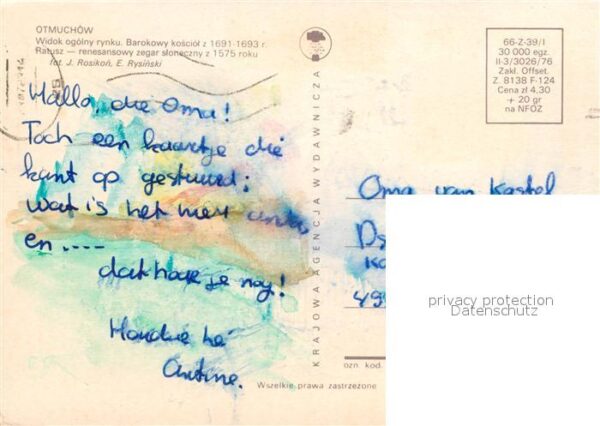 OTMUCHÓW
Widok ogólny rynku. Barokowy kościół z 1691-1693 r.
Ratusz — renesansowy zegar słoneczny z 1575 roku
fot. J. Rosikoń, E. Rysiński
Hallo, die Oma!
Toch een kaartje die
kant op gestuurd;
wat is het met
en ....
dat hoor je nog!
Houdoe hè
KRAJOWA AGENCJA WYDAWNICZA
66-Z-39/I
30 000 egz.
II-3/3026/76
Zakł. Offset.
Z. 8138 F-124
Cena zł 4,30
+ 20 gr
na NFOZ
Oma van Kastel
Ds
499
ozn. kod.
Wszelkie prawa zastrzeżone
privacy protection
Datenschutz